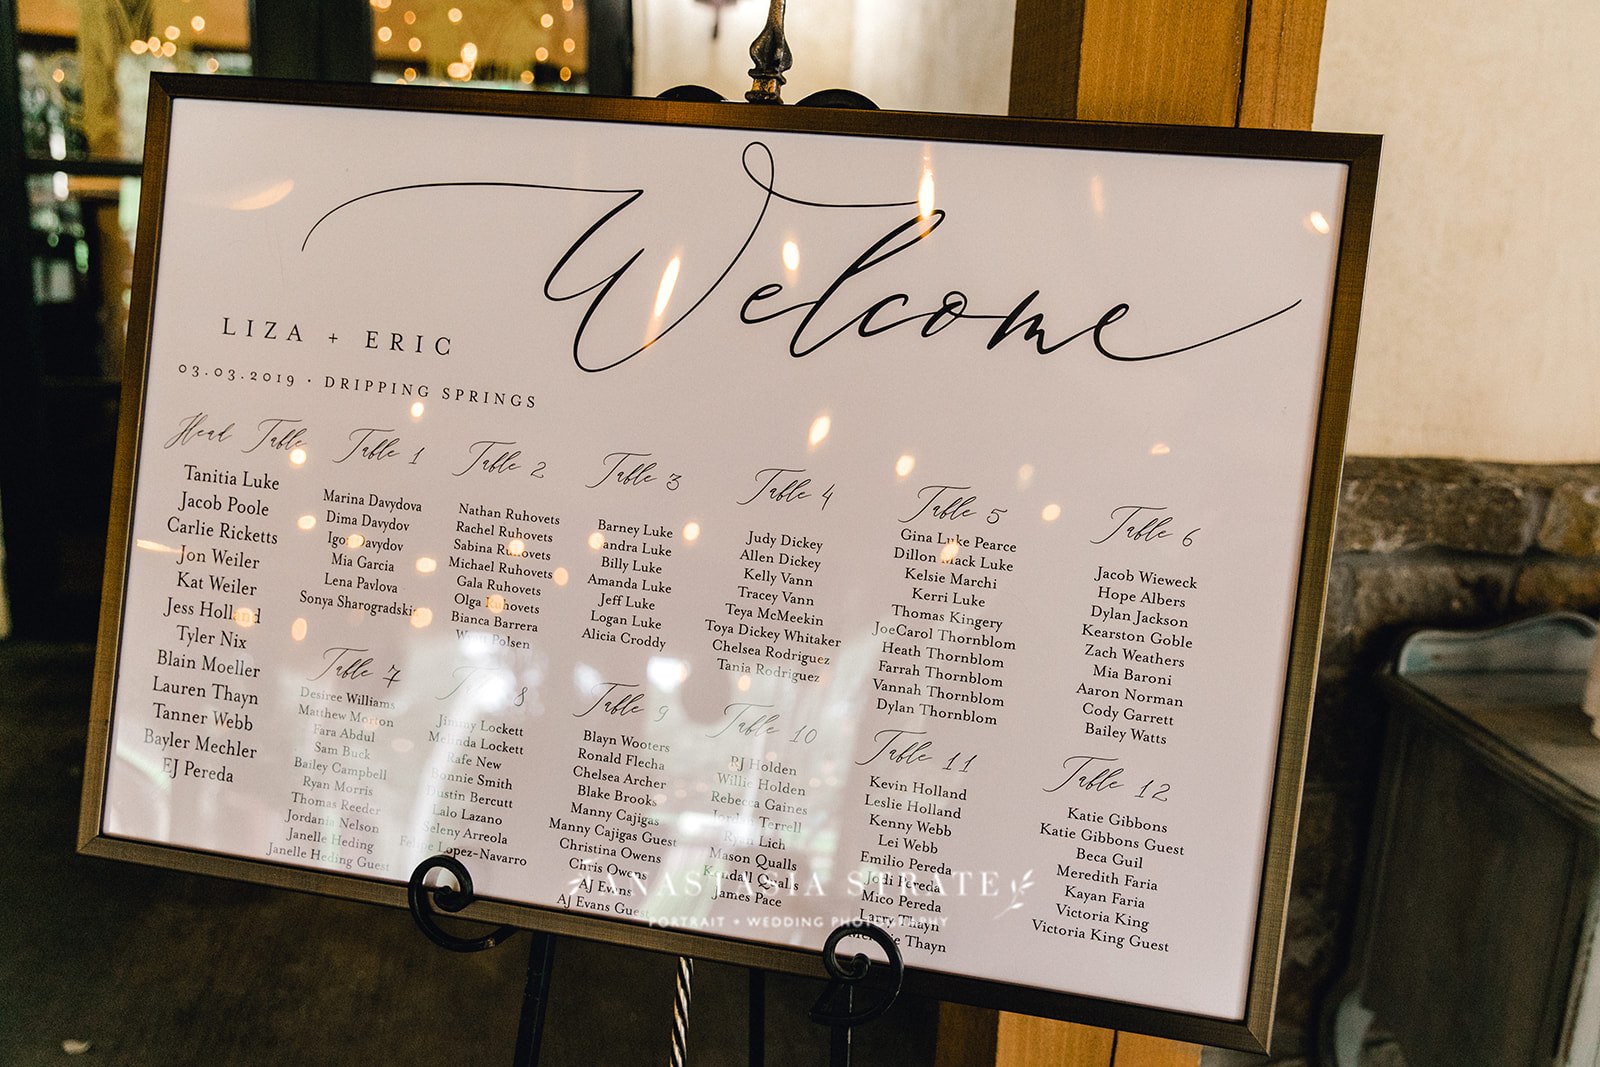 Welcome
LIZA + ERIC
03.03.2019 · DRIPPING SPRINGS
Head Table
Tanitia Luke
Jacob Poole
Carlie Ricketts
Jon Weiler
Kat Weiler
Jess Holland
Tyler Nix
Blain Moeller
Lauren Thayn
Tanner Webb
Bayler Mechler
EJ Pereda
Table 1
Marina Davydova
Dima Davydov
Igor Davydov
Mia Garcia
Lena Pavlova
Sonya Sharogradski
Table 2
Nathan Ruhovets
Rachel Ruhovets
Sabina Ruhovets
Michael Ruhovets
Gala Ruhovets
Olga Ruhovets
Bianca Barrera
Polsen
Table 3
Barney Luke
Sandra Luke
Billy Luke
Amanda Luke
Jeff Luke
Logan Luke
Alicia Croddy
Table 4
Judy Dickey
Allen Dickey
Kelly Vann
Tracey Vann
Teya McMeekin
Toya Dickey Whitaker
Chelsea Rodriguez
Tania Rodriguez
Table 5
Gina Luke Pearce
Dillon Mack Luke
Kelsie Marchi
Kerri Luke
Thomas Kingery
JoeCarol Thornblom
Heath Thornblom
Farrah Thornblom
Vannah Thornblom
Dylan Thornblom
Table 6
Jacob Wieweck
Hope Albers
Dylan Jackson
Kearston Goble
Zach Weathers
Mia Baroni
Aaron Norman
Cody Garrett
Bailey Watts
Table 7
Desiree Williams
Matthew Morton
Fara Abdul
Sam Buck
Bailey Campbell
Ryan Morris
Thomas Reeder
Jordania Nelson
Janelle Heding
Janelle Heding Guest
Table 8
Jimmy Lockett
Melinda Lockett
Rafe New
Bonnie Smith
Dustin Bercutt
Lalo Lazano
Seleny Arreola
Felipe Lopez-Navarro
Table 9
Blayn Wooters
Ronald Flecha
Chelsea Archer
Blake Brooks
Manny Cajigas
Manny Cajigas Guest
Christina Owens
Chris Owens
AJ Evans
AJ Evans Guest
Table 10
RJ Holden
Willie Holden
Rebecca Gaines
Jordan Terrell
Ryan Lich
Mason Qualls
Kendall Qualls
James Pace
Table 11
Kevin Holland
Leslie Holland
Kenny Webb
Lei Webb
Emilio Pereda
Jodi Pereda
Mico Pereda
Larry Thayn
Thayn
Table 12
Katie Gibbons
Katie Gibbons Guest
Beca Guil
Meredith Faria
Kayan Faria
Victoria King
Victoria King Guest
ANASTASIA STRATE
PORTRAIT + WEDDING PHOTOGRAPHY